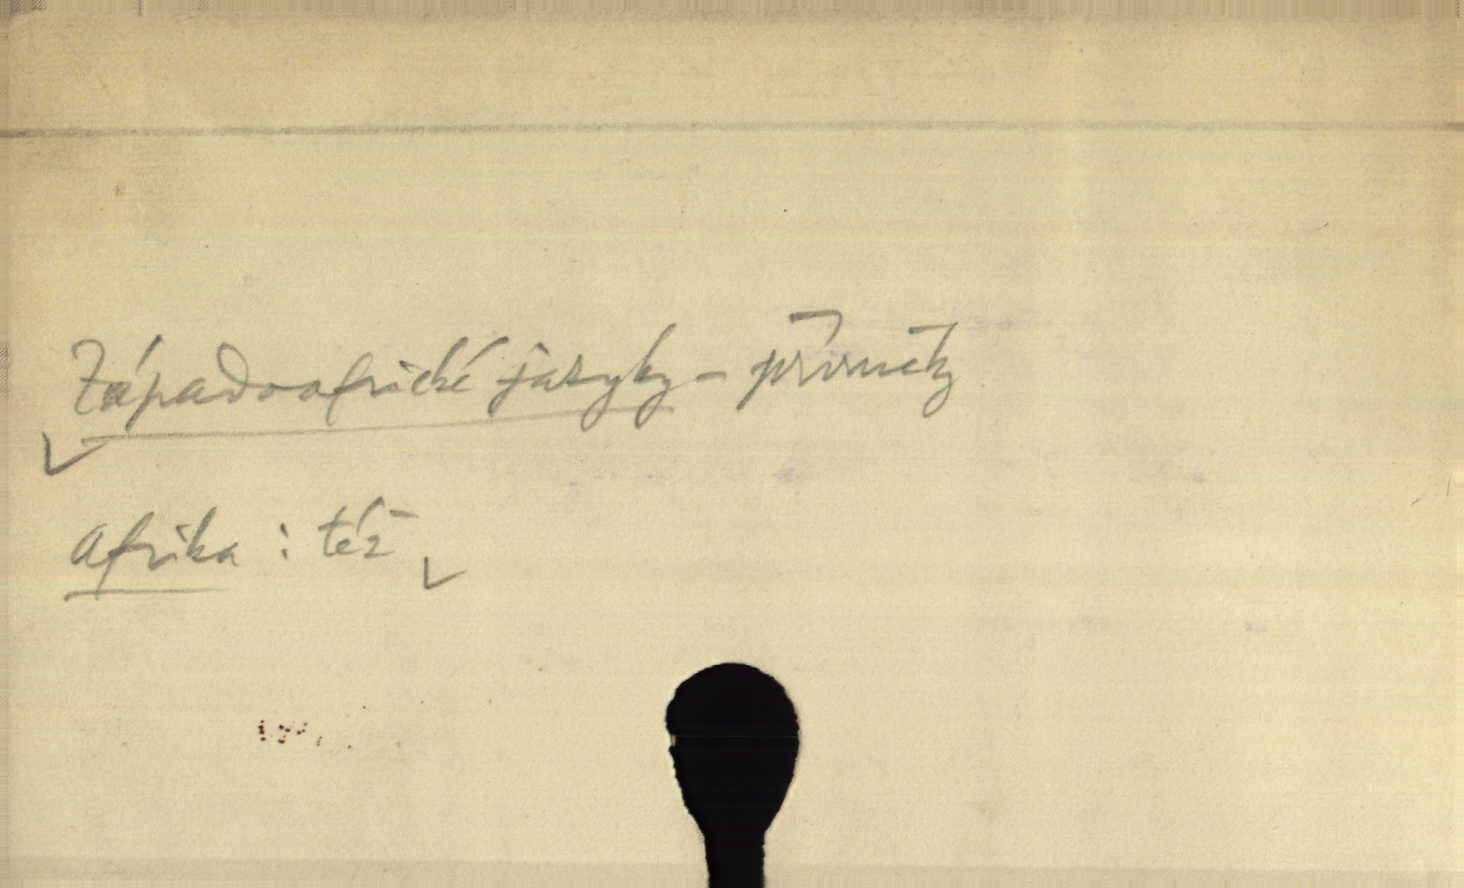 Západoafrické jazyky – příručky
Afrika : též